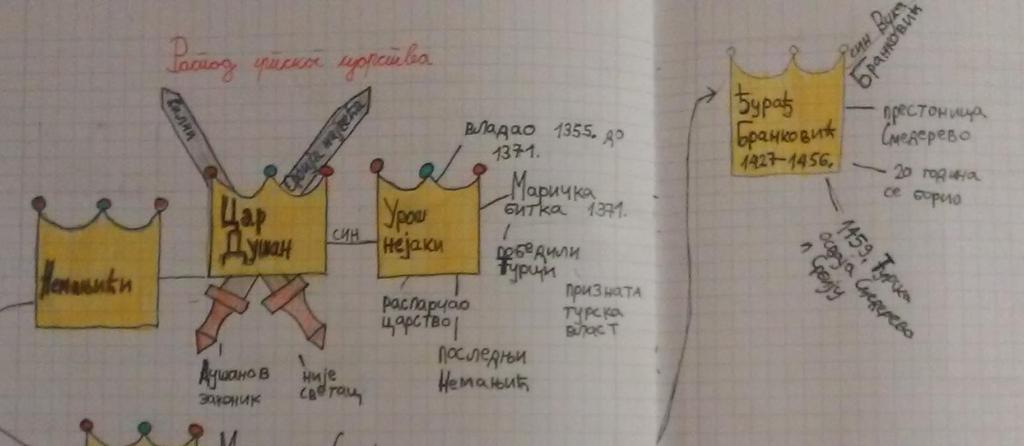 Распад српског царства
силни
Цар
Душан
Немањићи
син
Урош
нејаки
владао 1355. до
1371.
Маричка
битка 1371.
победили
Турци
призната
турска
власт
распарчао
царство
последњи
Немањић
Душанов
законик
није
светац
син Вука
Бранковић
Ђурађ
Бранковић
1427-1456.
престоница
Смедерево
20 година
се борио
1459. Турска
осваја Смедерево
и Србију